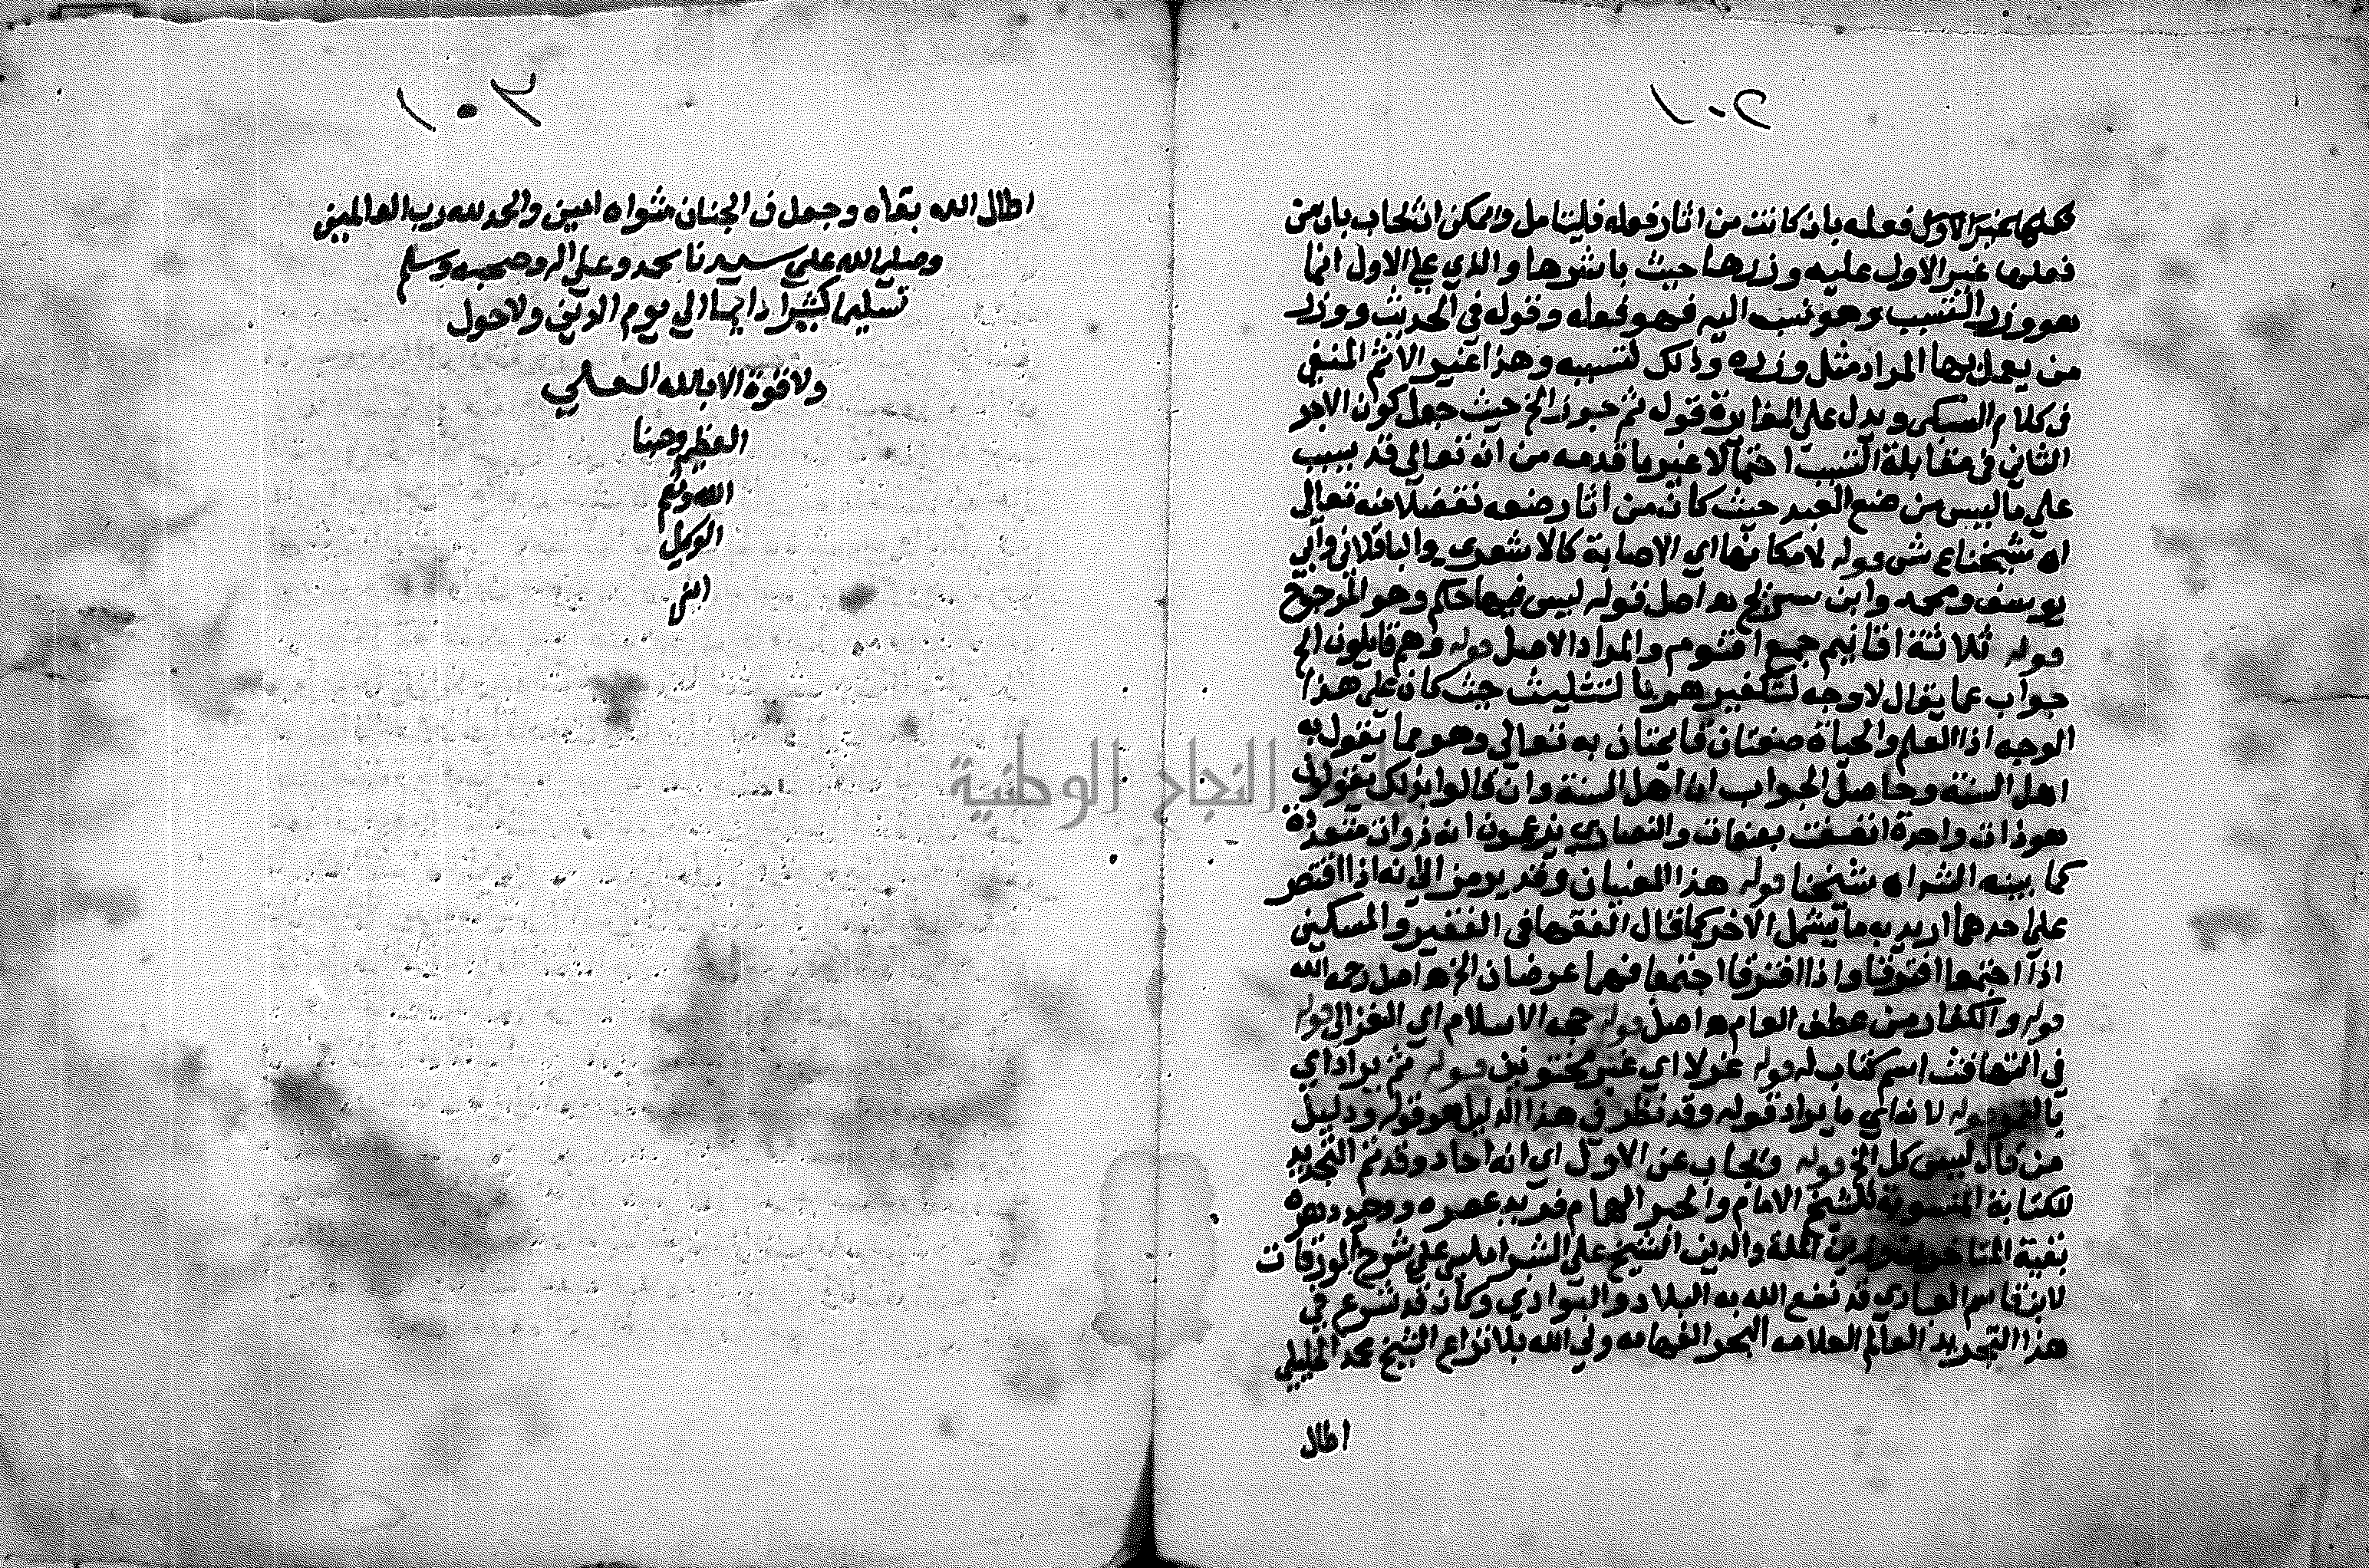 ٢٠١
فعلها غير الاول فعله بان كانت من اثار فعله فليتامل ويمكن انتخاب بان من
فعلها غير الاول عليه وزرها حيث باشرها والذي علي الاول انما
هو وزر التسبب وهو نسب اليه فهو فعله وقوله في الحديث ووزر
من يعمل بها المراد مثل وزره وذلك لتسببه وهذا غير الاثم المنفي
في كلام السبكي ويدل علي المغايرة قوله ثم جوز الخ حيث جعل كون الاجر
الثاني في مقابلة التسبب احتمالا غير ما قدمه من انه تعالي قد يسبب
علي ما ليس من صنع العبد حيث كان من اثار صنعه تفضلا منه تعالي
اه شيخنا ع ش قوله لامكانها اي الاصابة كالاشعري والباقلاني وابي
يوسف ومحمد وابن سريج اه اصل قوله ليس فيها حكم وهو المرجوح
قوله ثلاثة اقانيم جمع اقنوم والمراد الاصل قوله وهم قايلون الخ
جواب عما يقال لا وجه لتكفيرهم بالتثليث حيث كان علي هذا
الوجه اذ العلم والحياة صفتان قايمتان به تعالي وهو مما تقول به
اهل السنة وحاصل الجواب ان اهل السنة وان قالوا بذلك يقولون
هو ذات واحدة اتصفت بصفات والنصاري يزعمون انه ذوات متعددة
كما بينه الشراه شيخنا قوله هذا المعنيان وقد يرمز الي انه اذا اقتصر
علي احدهما اريد به ما يشمل الاخر كما قال الفقها في الفقير والمسكين
اذا اجتمعا افترقا واذا افترقا اجتمعا فهما عرضان الخ اه اصل رحمه الله
قوله والكفار من عطف العام اه اصل قوله حجة الاسلام اي الغزالي قوله
في التهافت اسم كتاب له قوله غرلا اي غير مختونين قوله ثم يراد اي
قوله لانه اي ما يراد قوله وقد نظر في هذا الدليل هو قوله ودليل
من قال ليس كل الخ قوله ونجاب عن الاول اي انه احاد وقد تم التجريد
للكتابة المنسوبة للشيخ الامام والحبر الهمام فريد عصره ووحيد دهره
بقية المتاخرين نور الملة والدين الشيخ علي الشبراملسي علي شرح الورقات
لابن قاسم العبادي قد نفع الله به البلاد والبوادي وكان قد شرع في
هذا التجريد العالم العلامه البحر الفهامه ولي الله بلا نزاع الشيخ محمد الخليلي
اطال
٢٠١
اطال الله بقاه وجعل في الجنان مثواه امين والحمد لله رب العالمين
وصلي الله علي سيدنا محمد وعلي اله وصحبه وسلم
تسليما كثيرا دايما الي يوم الدين ولا حول
ولا قوة الا بالله العلي
العظيم وحسبنا
الله ونعم
الوكيل
امين
النجاح الوطنية